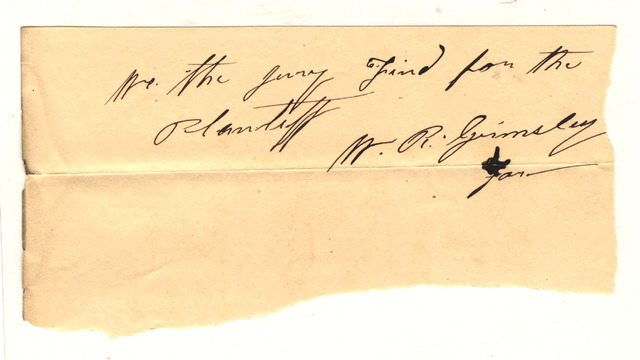 We the jury Find for the
Plantiff
W. R. Grimsley
For